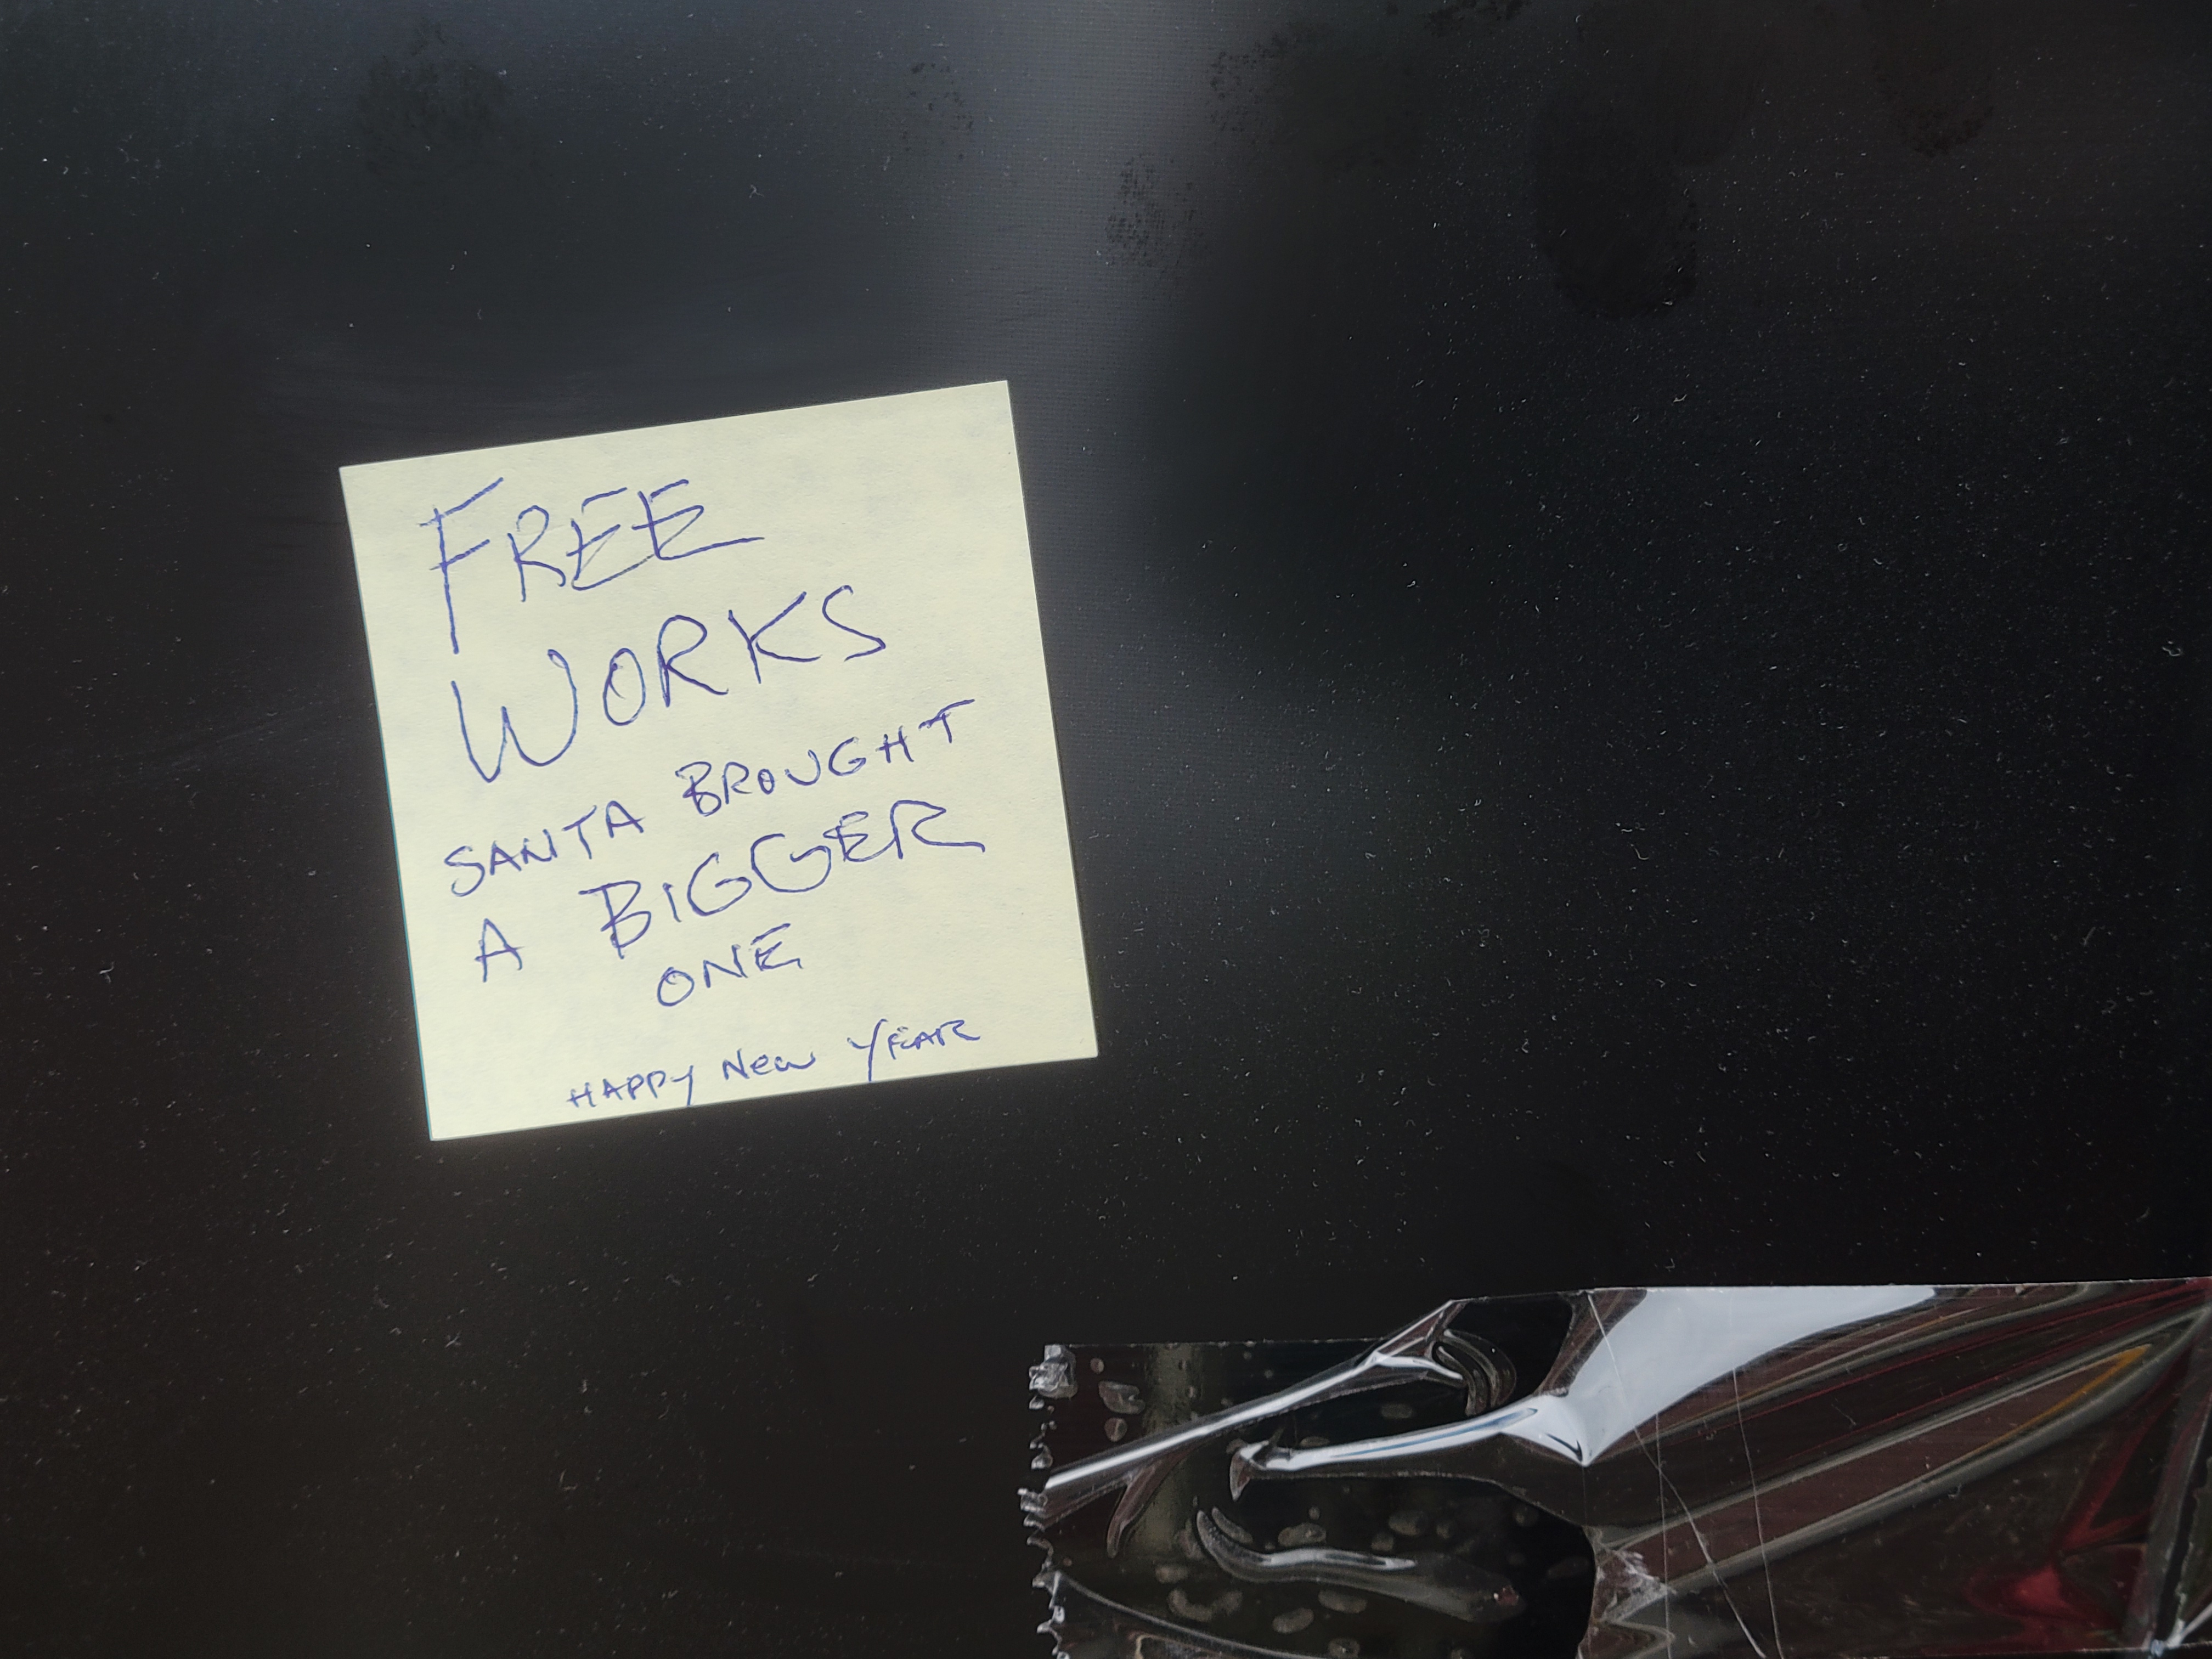 FREE
WORKS
SANTA BROUGHT
A BIGGER
ONE
HAPPY NEW YEAR